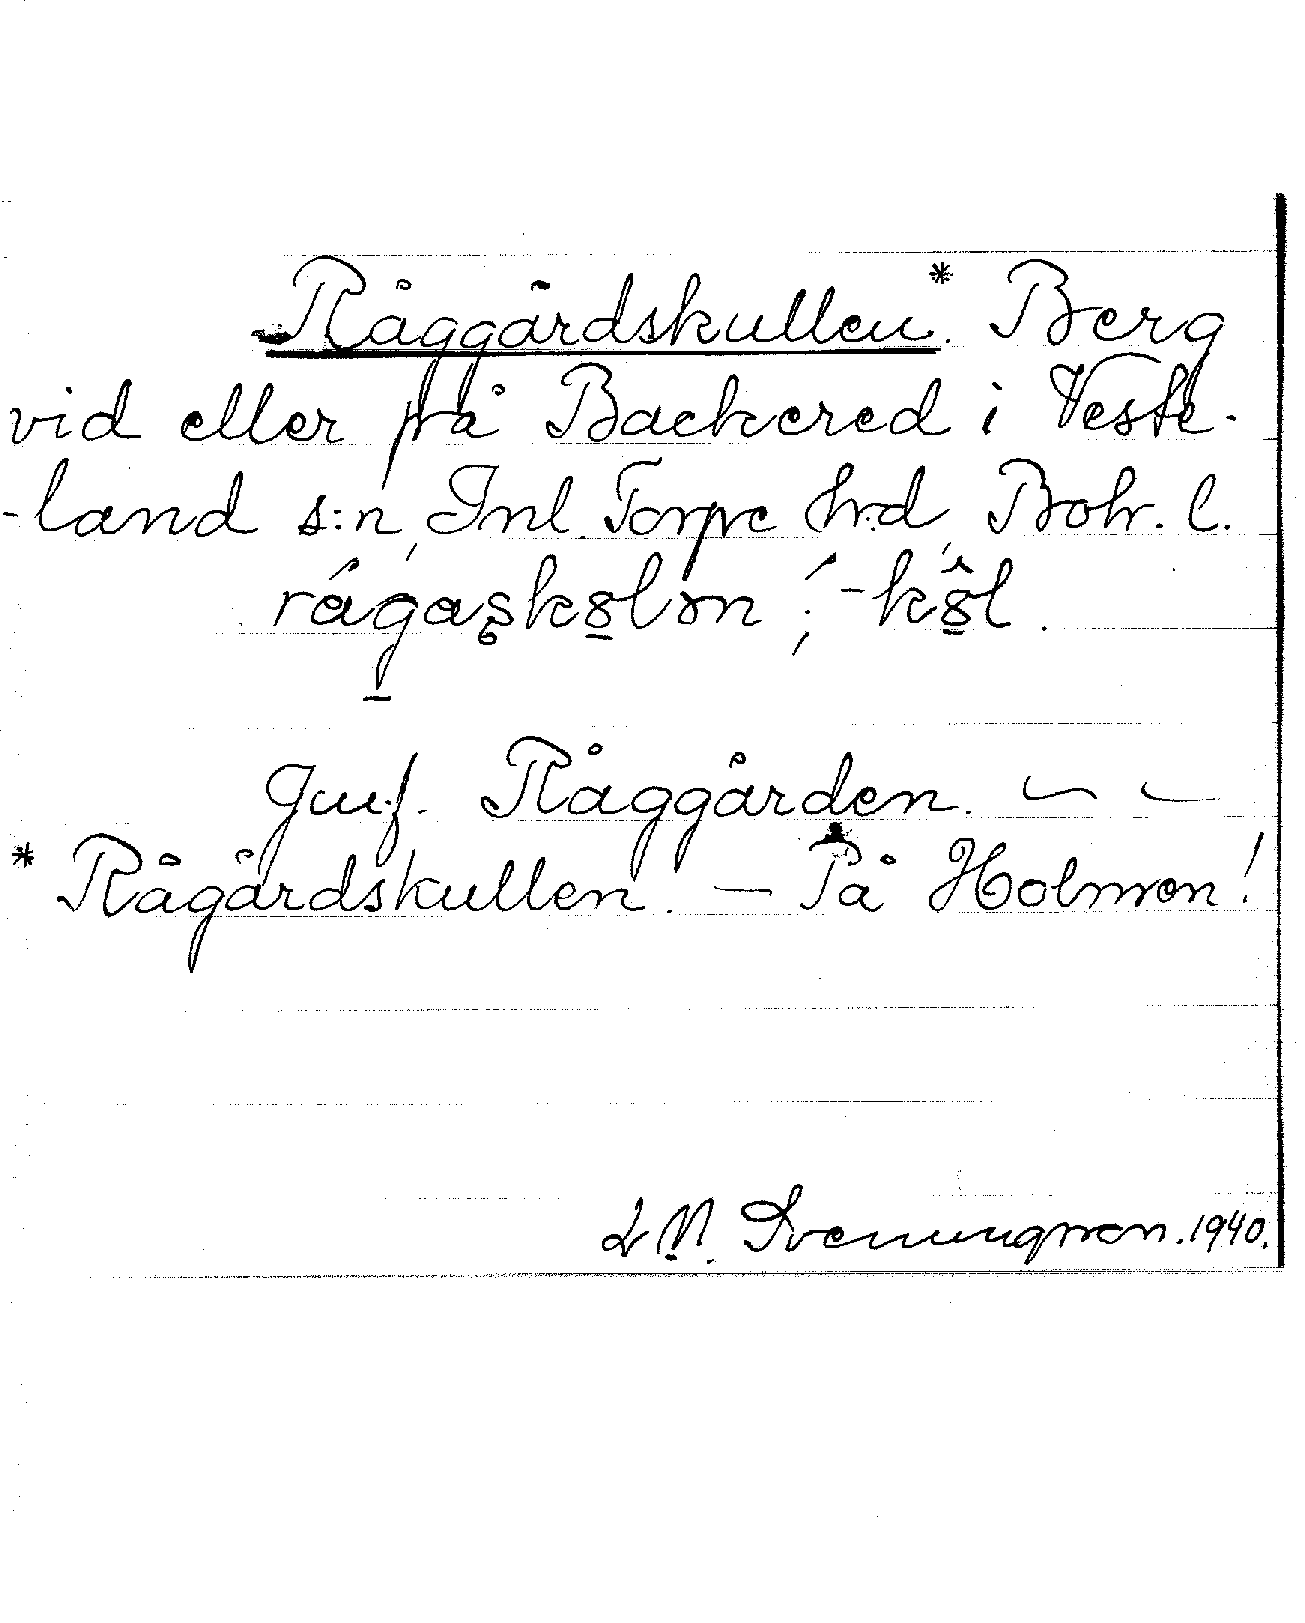 Råggårdskullen.* Berg
vid eller på Backered i Veste-
-land s:n, Inl. Torpe hrd, Boh. l.
rágaskolon ; -kôl.
Jmf. Råggården. — —
* Rågårdskullen. — På Holmen!
L N. Svenungsson. 1940.